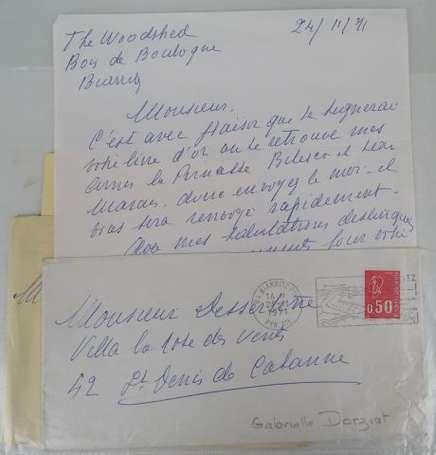 The Woodshed
Bois de Boulogne
Biarritz
24/11/71
Monsieur.
C'est avec plaisir que je signerai
votre livre d'or où je retrouve mes
amis la Pernatte Bitesco et Jean
Marais, donc envoyez le moi - il
vous sera renvoyé rapidement -
Avec mes salutations distinguées
pour votre
Monsieur Desserbenne
Villa la Rose des Vents
42 St Denis de Cabanne
BIARRITZ
1971
0,50
Gabrielle Dorziat